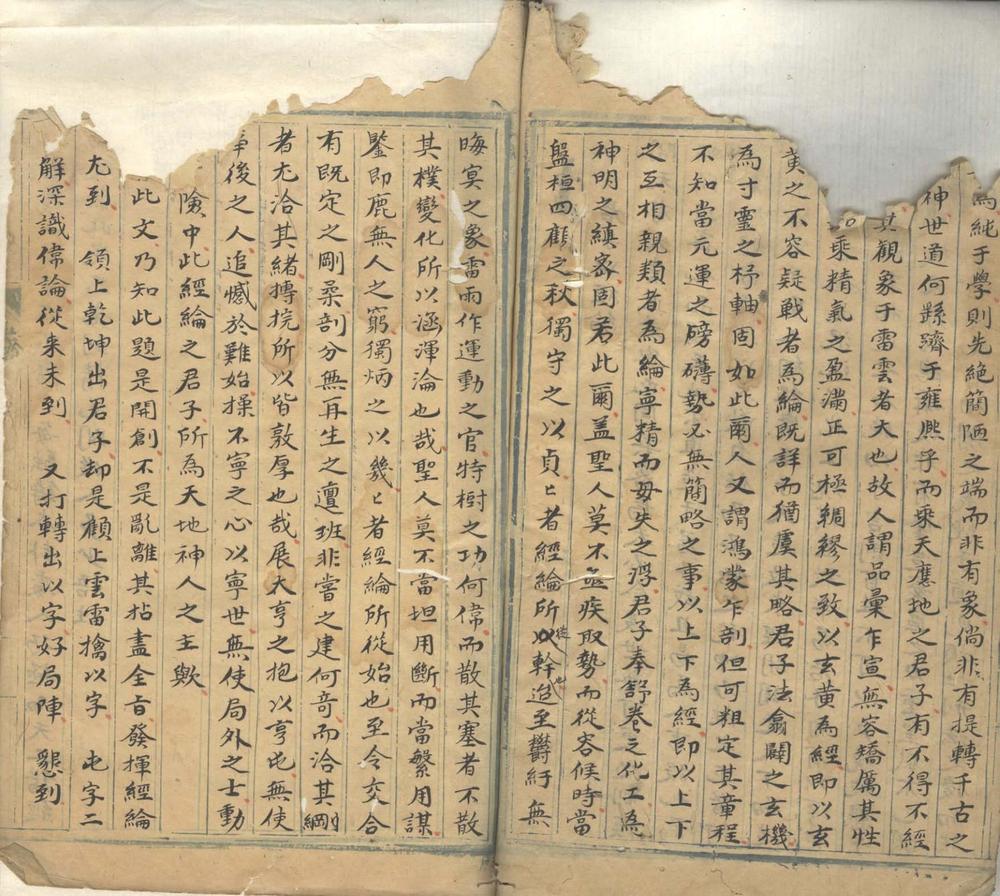 為純于學則先絕簡陋之端而非有象倘非有提轉千古之
神世道何繇躋于雍熙乎而乘天應地之君子有不得不經
其觀象于雷雲者大也故人謂品彙乍宣無容矯厲其性
乘精氣之盈滿正可極綢繆之致以玄黃為經即以玄
黃之不容疑戰者為綸既詳而猶虞其略君子法翕闢之玄機
為寸靈之杼軸固如此爾人又謂鴻蒙乍剖但可粗定其章程
不知當元運之磅礴勢必無簡略之事以上下為經即以上下
之互相親類者為綸寧精而毋失之浮君子奉舒卷之化工為
神明之縝密固若此爾盖聖人莫不疾取勢而從容候時當
盤桓四顧之秋獨守之以貞〻者經綸所從幹造也至欝紆無
晦冥之象雷雨作運動之官特樹之功何偉而散其塞者不散
其樸變化所以涵渾淪也哉聖人莫不當坦用斷而當繁用謀
鑒即鹿無人之窮獨炳之以幾〻者經綸所從始也至令交合
有既定之剛柔剖分無再生之邅班非嘗之建何奇而洽其剛
者尤洽其緒摶捖所以皆敦厚也哉展大亨之抱以亨屯無使
後之人追憾於難始操不寧之心以寧世無使局外之士動
險中此經綸之君子所為天地神人之主歟
此文乃知此題是開創不是亂離其拈盡全旨發揮經綸
尤到 領上乾坤出君子却是顧上雲雷擒以字 屯字二
解深識偉論從來未到 又打轉出以字好局陣 懇到